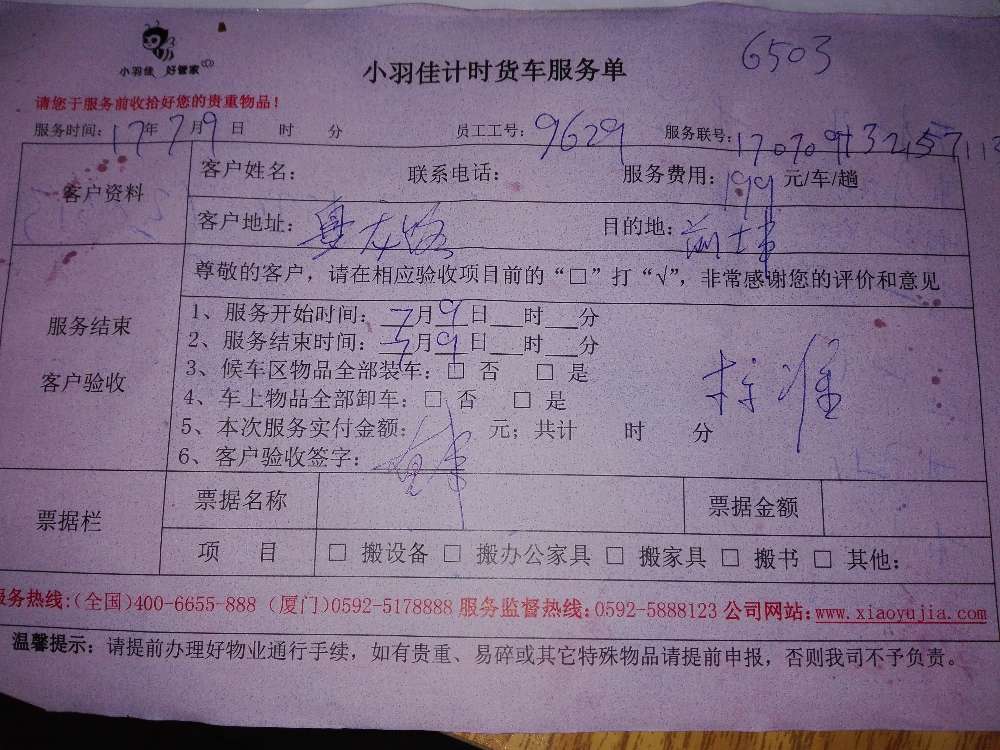 小羽佳 好管家
小羽佳计时货车服务单
6503
请您于服务前收拾好您的贵重物品！
服务时间：17年7月9日 时 分 员工工号：9629 服务联号：
客户资料
客户姓名： 联系电话： 服务费用：199元/车/趟
客户地址： 目的地：
服务结束
客户验收
尊敬的客户，请在相应验收项目前的“□”打“√”，非常感谢您的评价和意见
1、服务开始时间：7月9日__时__分
2、服务结束时间：7月9日__时__分
3、候车区物品全部装车：□ 否 □ 是
4、车上物品全部卸车：□ 否 □ 是
5、本次服务实付金额： 元；共计 时 分
6、客户验收签字：
标准
票据栏
票据名称 票据金额
项 目 □ 搬设备 □ 搬办公家具 □ 搬家具 □ 搬书 □ 其他：
服务热线:(全国)400-6655-888 (厦门)0592-5178888 服务监督热线:0592-5888123 公司网站:www.xiaoyujia.com
温馨提示：请提前办理好物业通行手续，如有贵重、易碎或其它特殊物品请提前申报，否则我司不予负责。